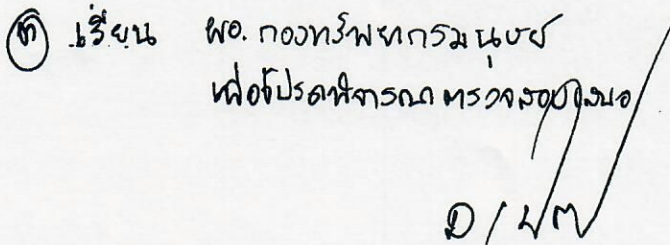 ๓ เรียน ผอ. กองทรัพยากรมนุษย์
เพื่อโปรดพิจารณาตรวจสอบเสนอ